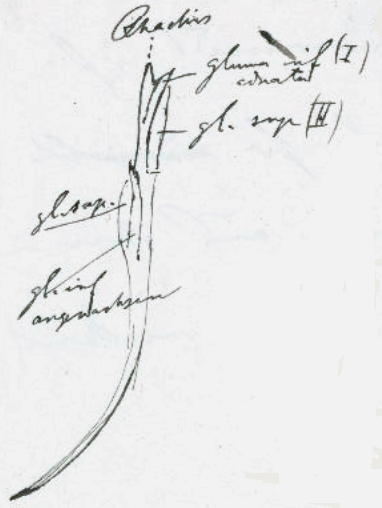 Rhachis
gluma inf (I)
adnata
gl. sup (II)
gl. sup.
gl. inf
angewachsen